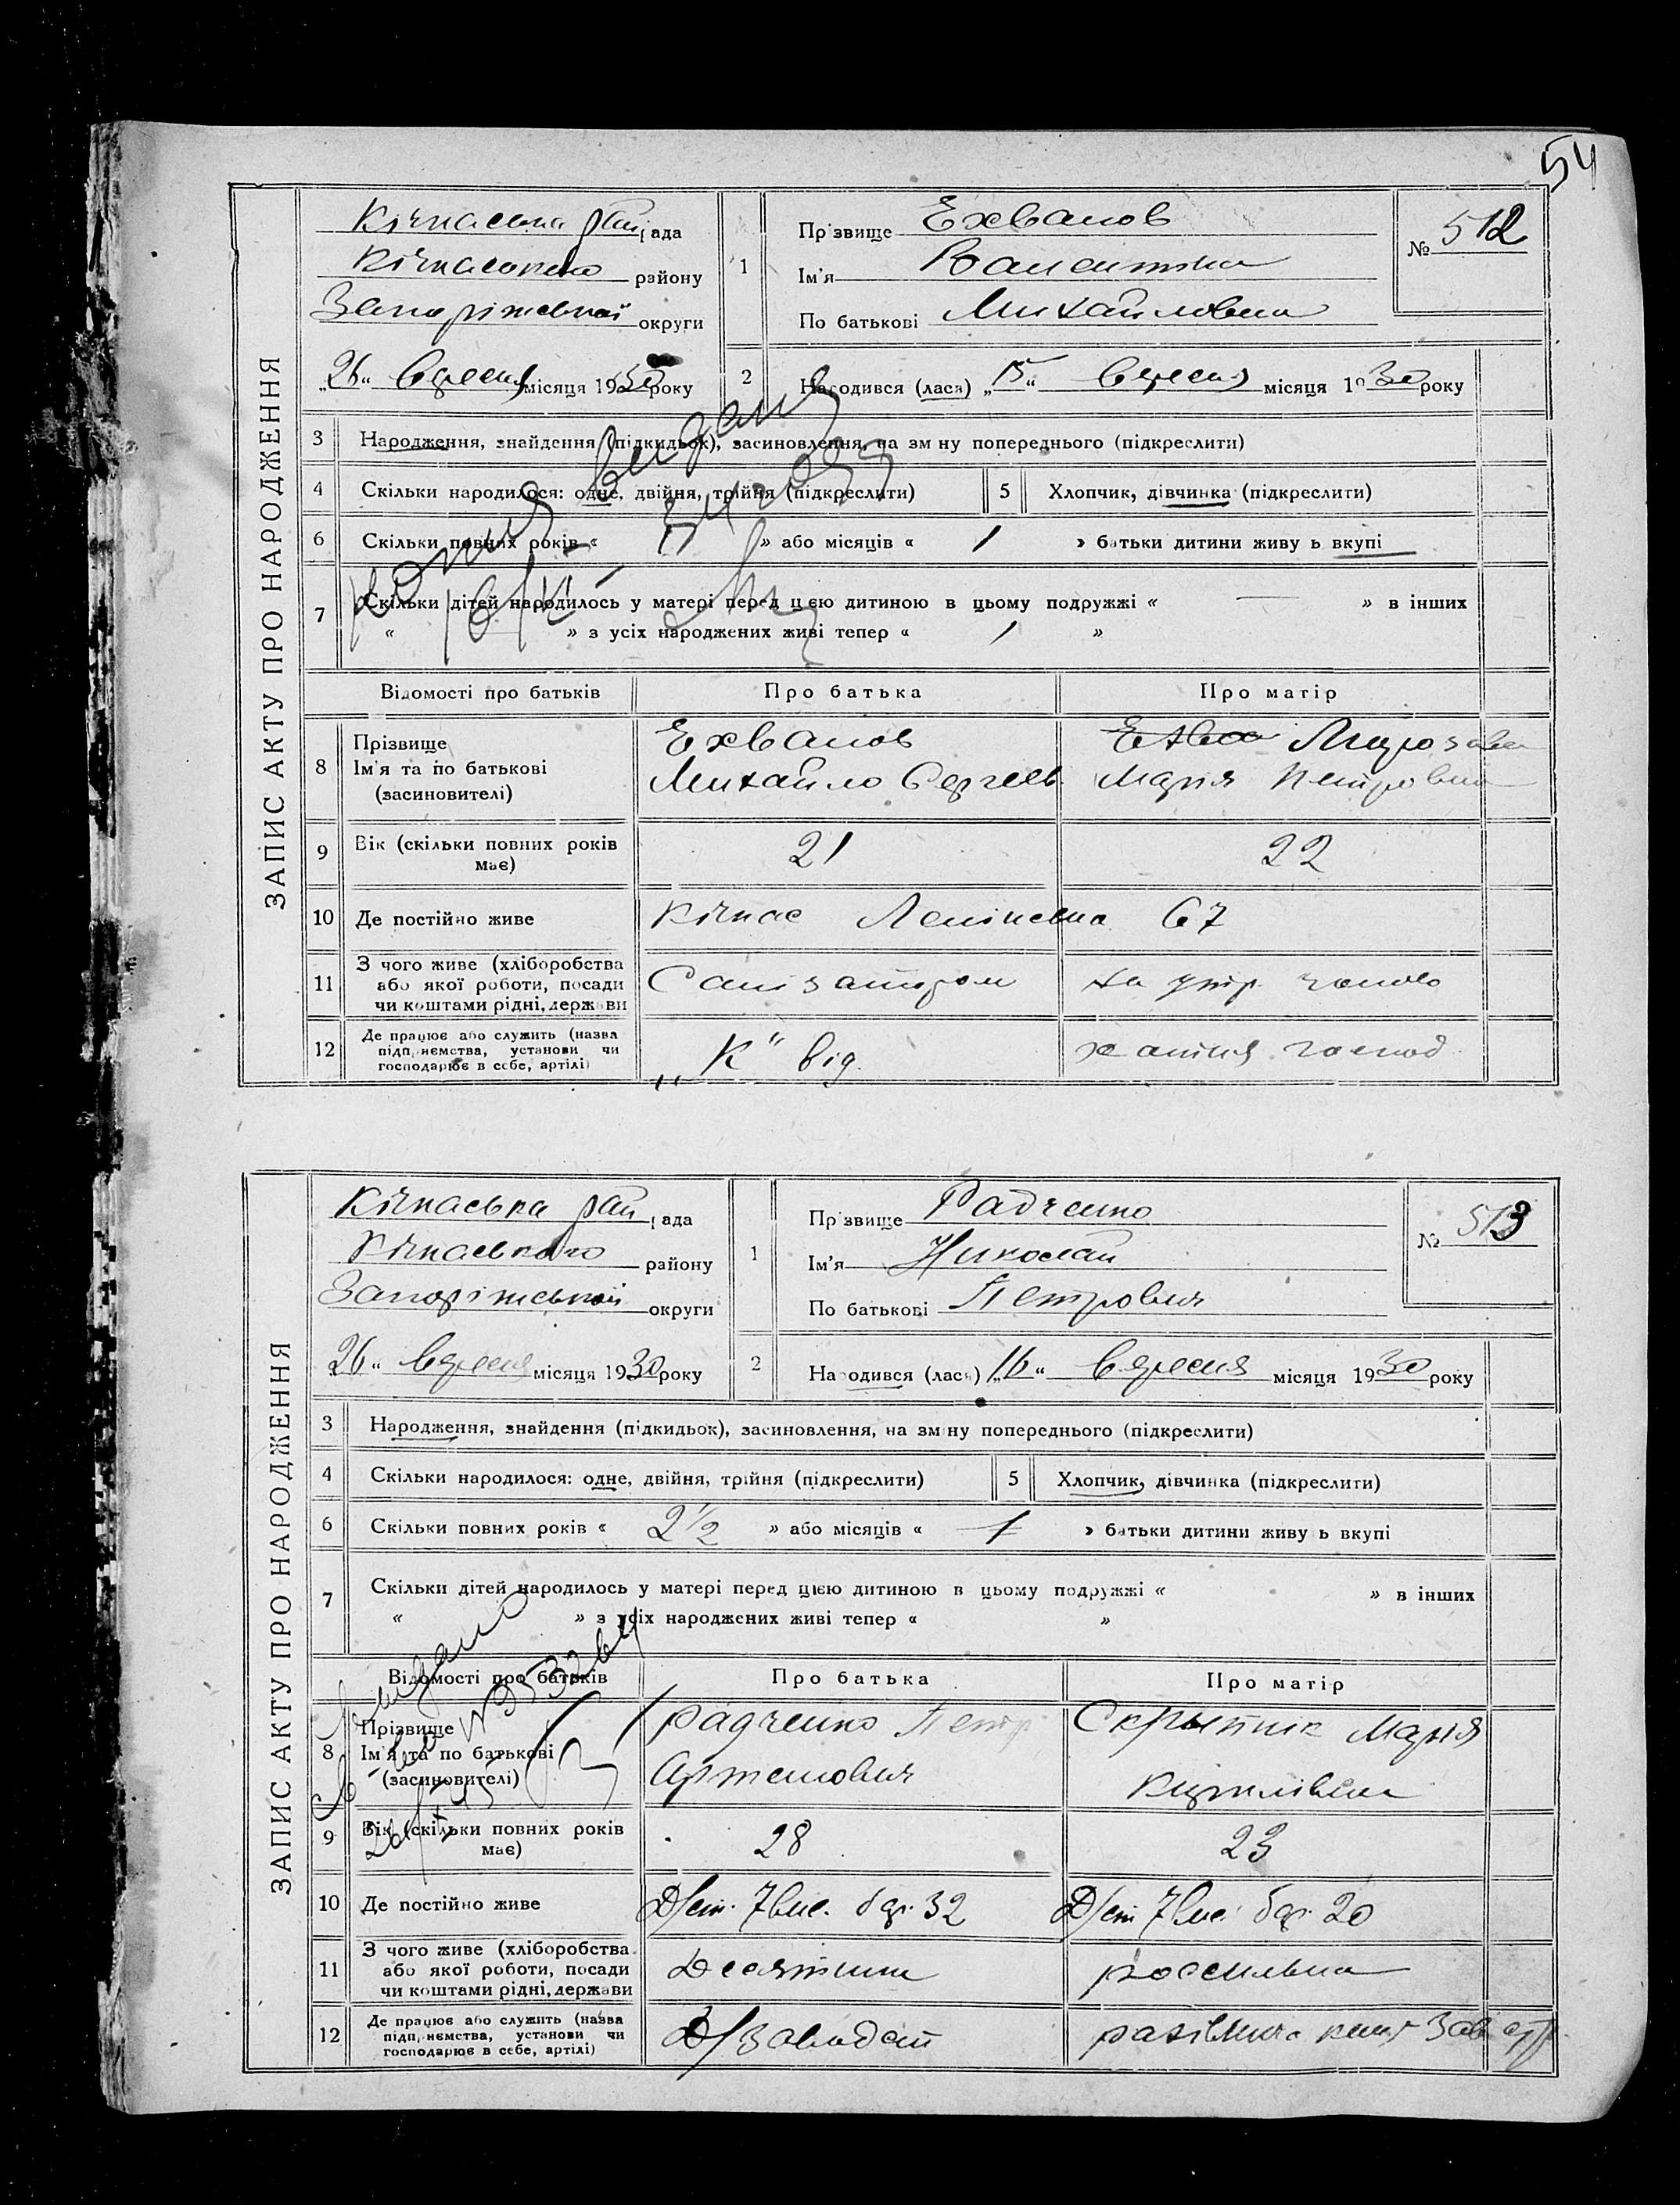 54
ЗАПИС АКТУ ПРО НАРОДЖЕННЯ
Кічкаська рай рада
Кічкаського району
Запоріжської округи
„26“ вересня місяця 1930 року
1
Прізвище Ехванов
Ім'я Валентина
По батькові Михайловна
№ 512
2 Народився (лася) „15“ вересня місяця 1930 року
3 Народження, знайдення (підкидьок), засиновлення, на зміну попереднього (підкреслити)
4 Скільки народилося: одне, двійня, трійня (підкреслити)
5 Хлопчик, дівчинка (підкреслити)
6 Скільки повних років « » або місяців « 1 » батьки дитини живуть вкупі
7 Скільки дітей народилось у матері перед цією дитиною в цьому подружжі « — » в інших
« » з усіх народжених живі тепер « 1 »
Копия выдана
Відомості про батьків
Про батька
Про матір
8 Прізвище
Ім'я та по батькові
(засиновителі)
Ехванов
Михайло Сергеев.
Марія Петровна
9 Вік (скільки повних років має)
21
22
10 Де постійно живе
Кічкас Ленінська 67
11 З чого живе (хліборобства
або якої роботи, посади
чи коштами рідні, держави
на утр. чолов
12 Де працює або служить (назва
підприємства, установи чи
господарює в себе, артілі)
„К“ від.
хатня господ.
ЗАПИС АКТУ ПРО НАРОДЖЕННЯ
Кічкаська рай рада
Кічкаського району
Запоріжської округи
26“ вересня місяця 1930 року
1
Прізвище Радченко
Ім'я Николай
По батькові Петрович
№ 513
2 Народився (лася) „16“ вересня місяця 1930 року
3 Народження, знайдення (підкидьок), засиновлення, на зміну попереднього (підкреслити)
4 Скільки народилося: одне, двійня, трійня (підкреслити)
5 Хлопчик, дівчинка (підкреслити)
6 Скільки повних років « 2 1/2 » або місяців « » батьки дитини живуть вкупі
7 Скільки дітей народилось у матері перед цією дитиною в цьому подружжі « » в інших
« » з усіх народжених живі тепер « »
Відомості про батьків
Про батька
Про матір
8 Прізвище
Ім'я та по батькові
(засиновителі)
Радченко Петр
Артемович
Скрыпник Марія
Кирилівна
9 Вік (скільки повних років має)
28
23
10 Де постійно живе
Д/ст. 7 вис. бар. 32
Д/ст 7 вис. бар. 20
11 З чого живе (хліборобства
або якої роботи, посади
чи коштами рідні, держави
Десятник
россильна
12 Де працює або служить (назва
підприємства, установи чи
господарює в себе, артілі)